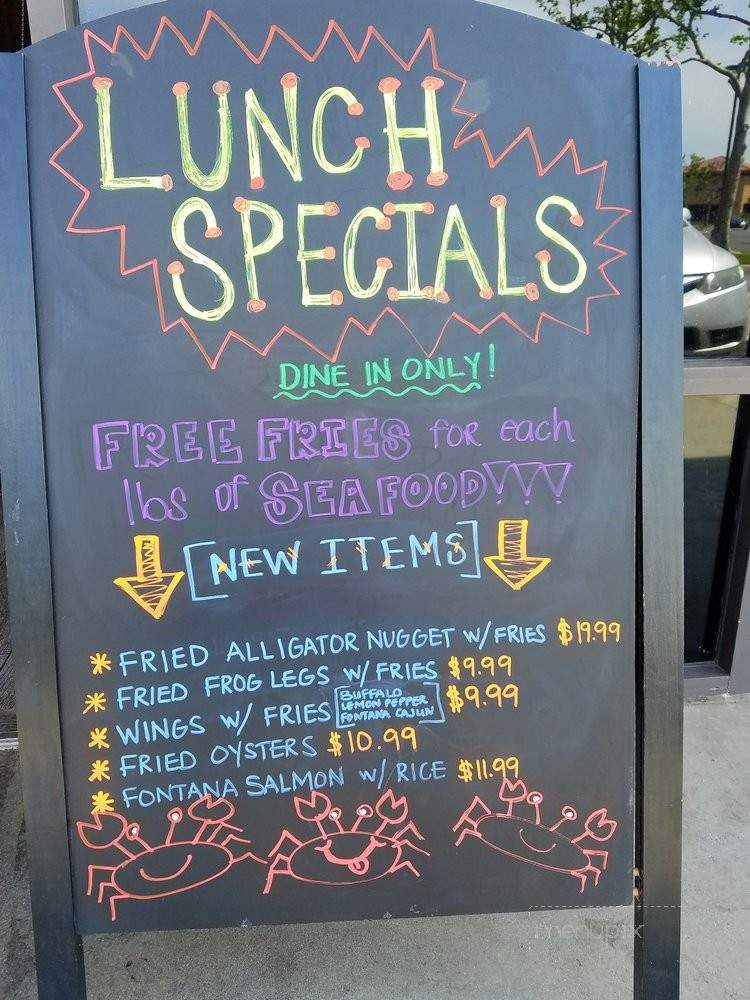 LUNCH
SPECIALS
DINE IN ONLY!
FREE FRIES for each
lbs of SEAFOOD!!!
[NEW ITEMS]
* FRIED ALLIGATOR NUGGET W/FRIES $19.99
* FRIED FROG LEGS W/ FRIES $9.99
* WINGS W/ FRIES BUFFALO LEMON PEPPER FONTANA CAJUN $9.99
* FRIED OYSTERS $10.99
* FONTANA SALMON W/ RICE $11.99
menupix